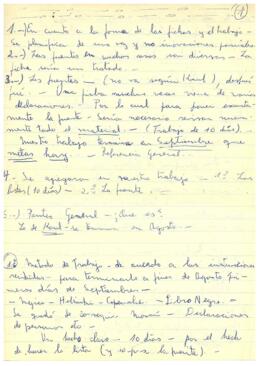 1.- En cuanto a la forma de las fichas, y el trabajo.
Se planifica de una vez y no inovaciones posteriores.
2.- Las fuentes en muchos casos son diversas - La
ficha sirve un tratado.
3.- Las fuentes - (no va según Raul), después
fui. - Una ficha muchas veces nace de varias
declaraciones. Por lo cual para poner exacta-
mente la fuente - Sería necesario revisar nueva-
mente todo el material. - (Trabajo de 10 días).
Nuestro trabajo termina en Septiembre que
- Referencia General.
4 - Se agregaron en nuestro trabajo - 1º Las
listas (10 días) - 2º La fuente.
5.- Pautas General - ¿Que es?
Lo de Raul - se termina en Agosto -
Método de Trabajo - de acuerdo a las instrucciones
recibidas - para terminarlo a fines de Agosto pri-
meros días de Septiembre -
- Negro - - Libro Negro -
Se quedó de conseguir - Declaraciones
de
- 10 días - por el hecho
de hacer la lista (y no por la fuente).